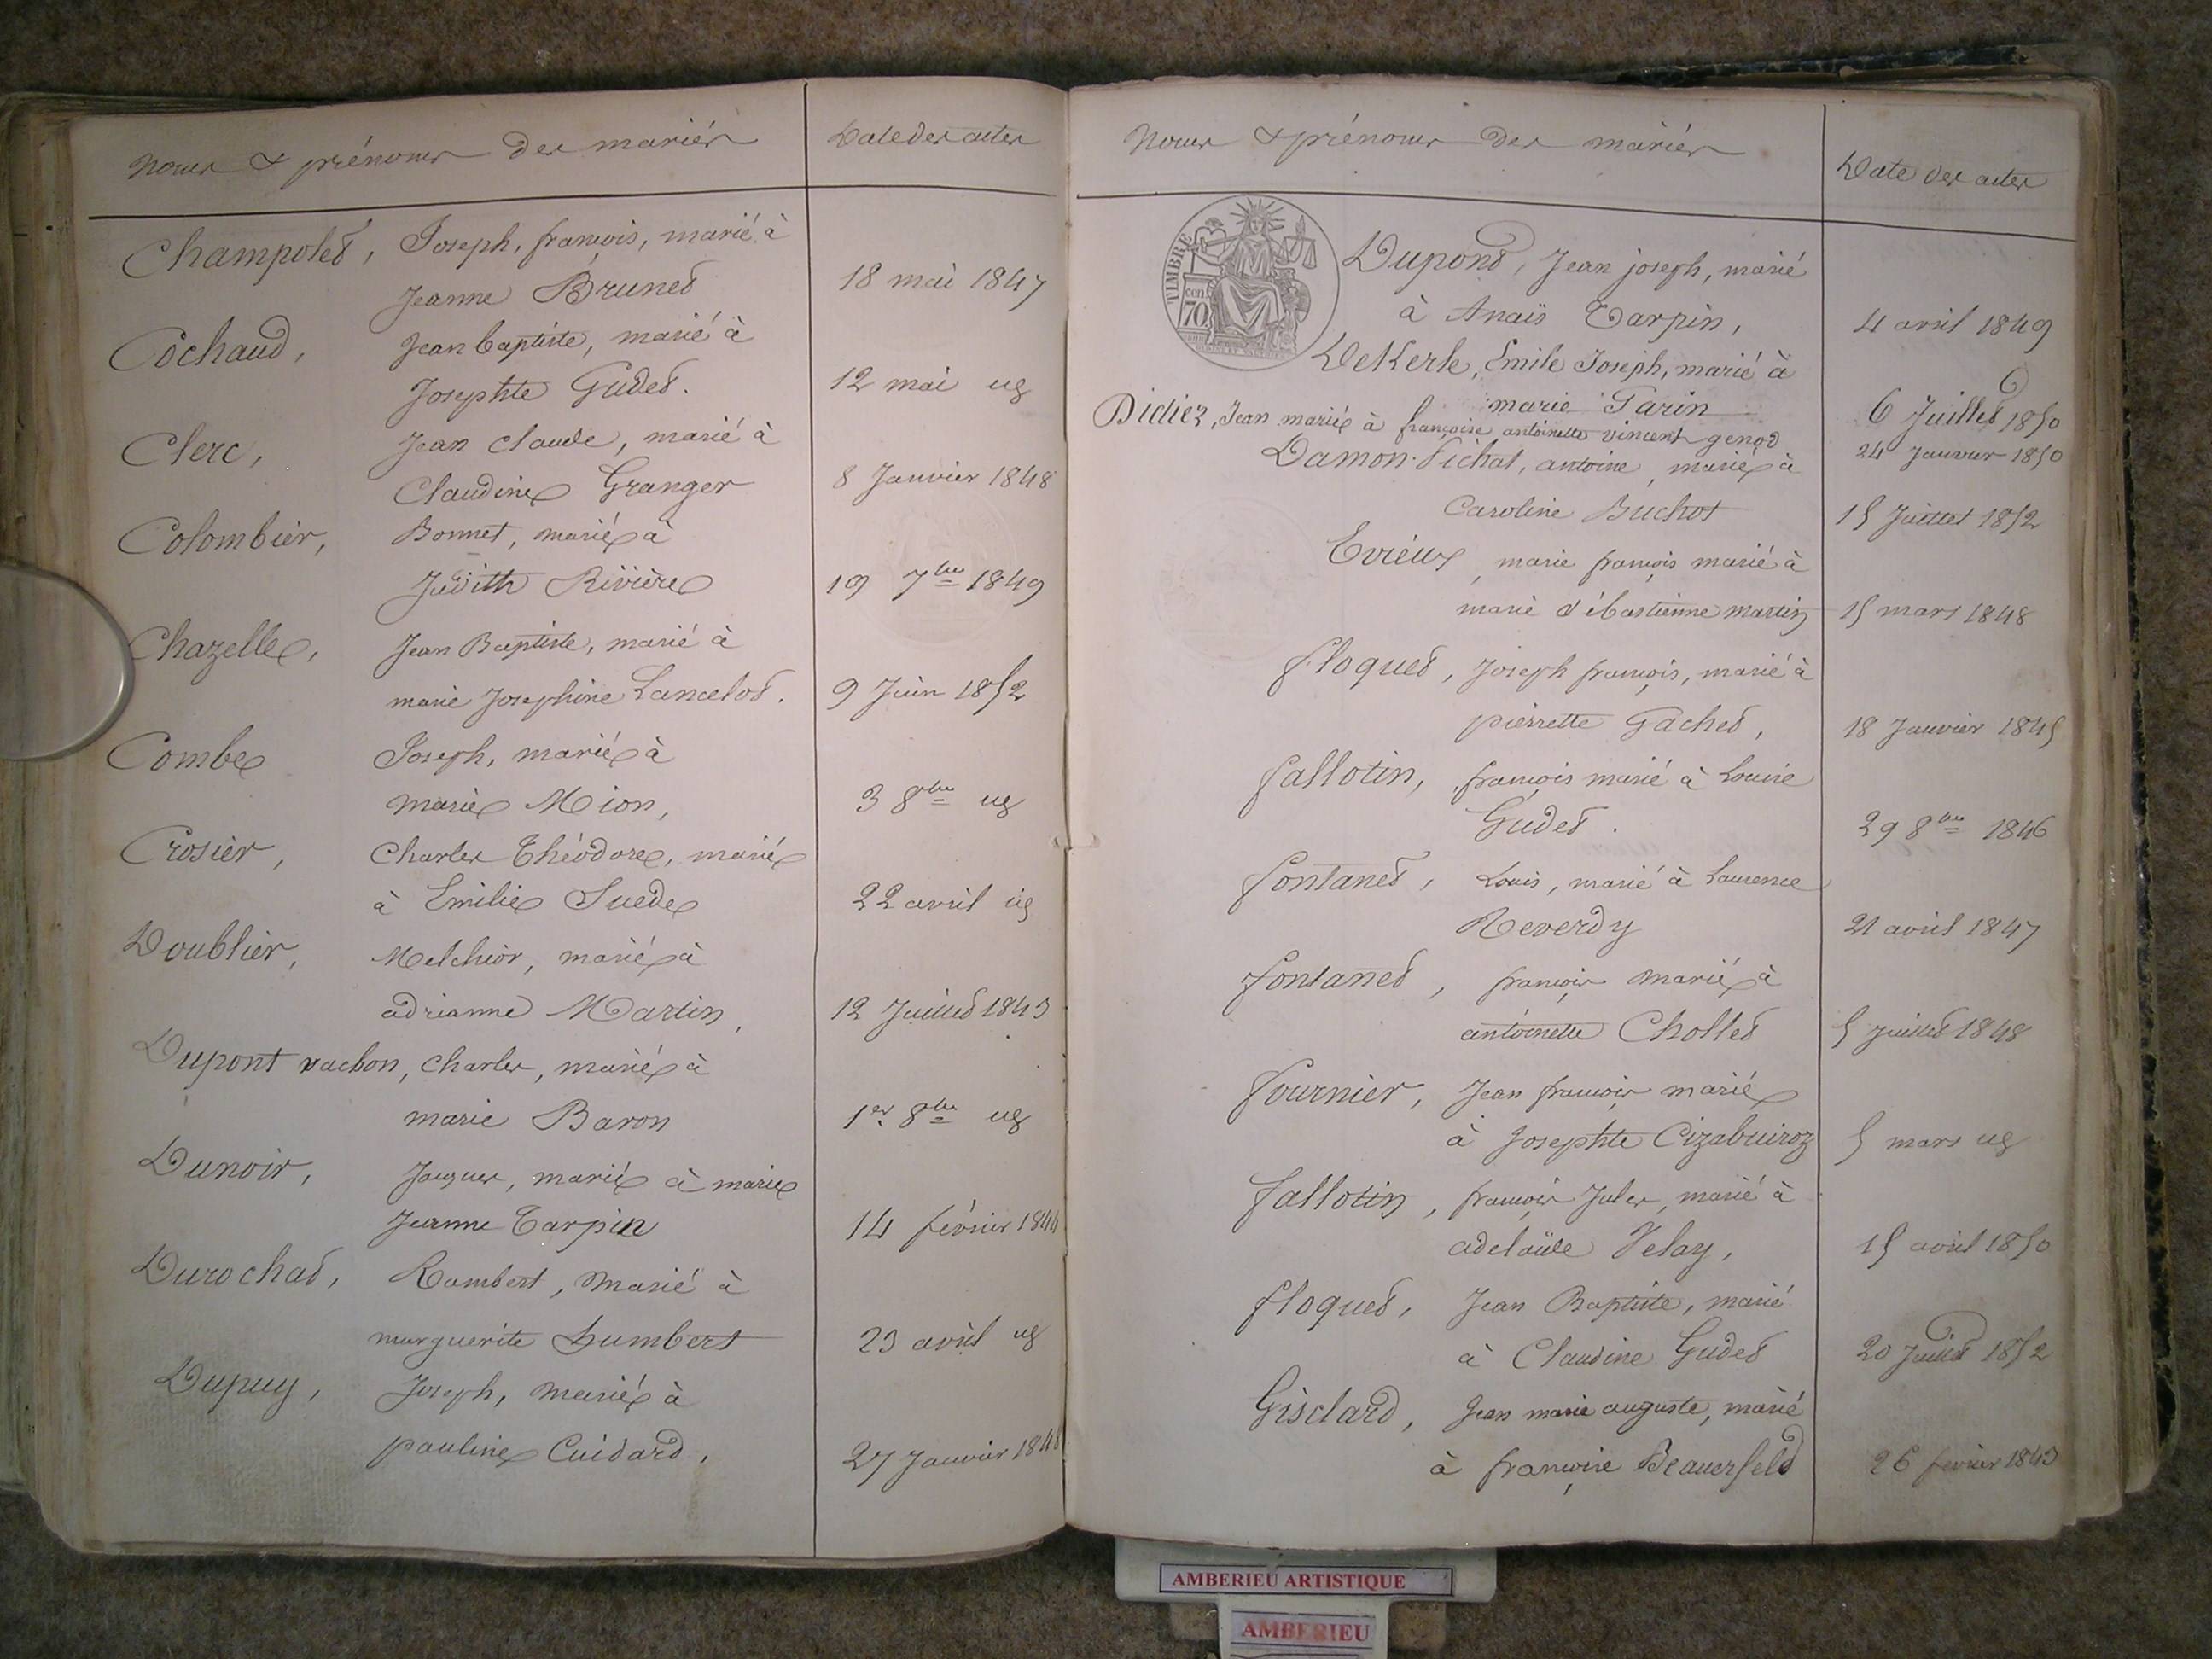 Noms & prénoms des mariés
Date des actes
Champolet, Joseph, françois, marié à
Jeanne Brunet
18 mai 1847
Cochaud, Jean baptiste, marié à
Josephte Gudet.
12 mai ug
Clerc, Jean Claude, marié à
Claudine Granger
8 Janvier 1848
Colombier, Bonnet, marié à
Judith Rivière
19 7bre 1849
Chazelle, Jean Baptiste, marié à
marie Josephine Lancelot.
9 Juin 1852
Combe Joseph, marié à
marie Mion,
3 8bre ug
Crosier, Charles Théodore, marié
à Emilie Suede
22 avril ug
Doublier, Melchior, marié à
adrianne Martin,
12 Juillet 1843
Dupont vachon, Charles, marié à
marie Baron
1er 8bre ug
Dunoir, Jacques, marié à marie
Jeanne Tarpin
14 février 1844
Durochat, Rambert, marié à
marguerite Humbert
23 avril ug
Dupuy, Joseph, marié à
pauline Cuidard,
27 Janvier 1848
Noms & prénoms des mariés
Date des actes
TIMBRE
70 cen
Dupont, Jean joseph, marié
à Anaïs Tarpin,
4 avril 1849
DeKerle, Emile Joseph, marié à
marie Tarin
6 Juillet 1850
Didier, Jean marié à françoise antoinette vincent genod
24 Janvier 1850
Damon-Fichat, antoine, marié à
Caroline Buchot
15 Juillet 1852
Evrieux, marie françois marié à
marie sébastienne martin
15 mars 1848
floquet, Joseph françois, marié à
pierrette Gachet,
18 Janvier 1845
fallotin, françois marié à Louise
Gudet.
29 8bre 1846
fontanet, Louis, marié à Laurence
Reverdy
21 avril 1847
fontanet, françois marié à
antoinette Chollet
5 Juillet 1848
fournier, Jean françois marié
à Josephte Cizabuiroz
5 mars ug
fallotin, françois Jules, marié à
adelaïde Velay,
15 avril 1850
floquet, Jean Baptiste, marié
à Claudine Gudet
20 Juillet 1852
Gisclard, Jean marie auguste, marié
à françoise Beauerfeld
26 février 1843
AMBERIEU ARTISTIQUE
AMBERIEU